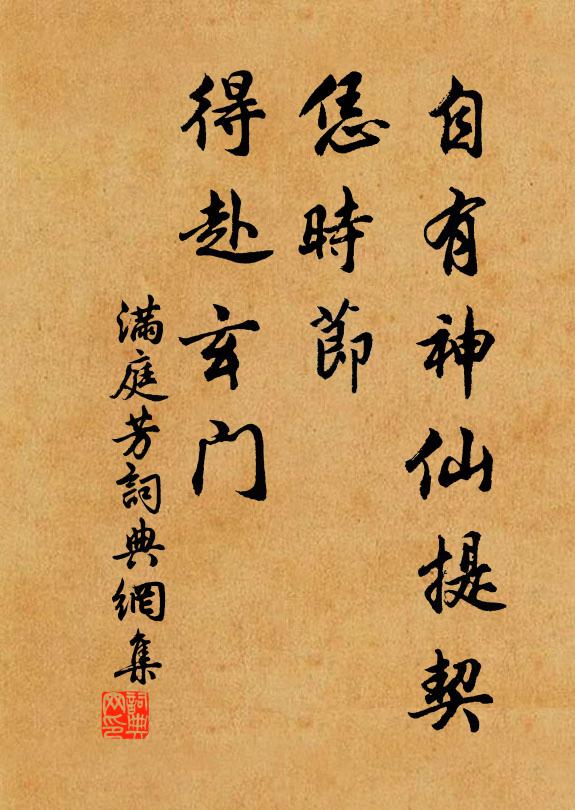 自有神仙提契
恁時節
得赴玄門
滿庭芳詞典網集
詞典网印